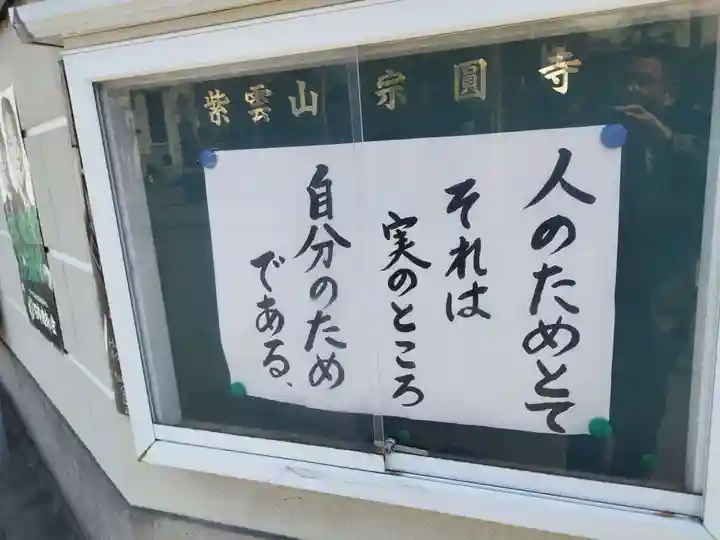 紫雲山 宗圓寺
人のためとて
それは
実のところ
自分のため
である、